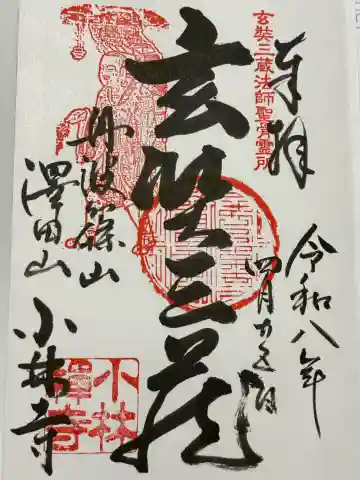 玄奘三蔵法師聖骨霊所
奉拝
令和八年
四月廿五日
玄奘三蔵
丹波篠山
澤田山
小林寺
小林
禅寺